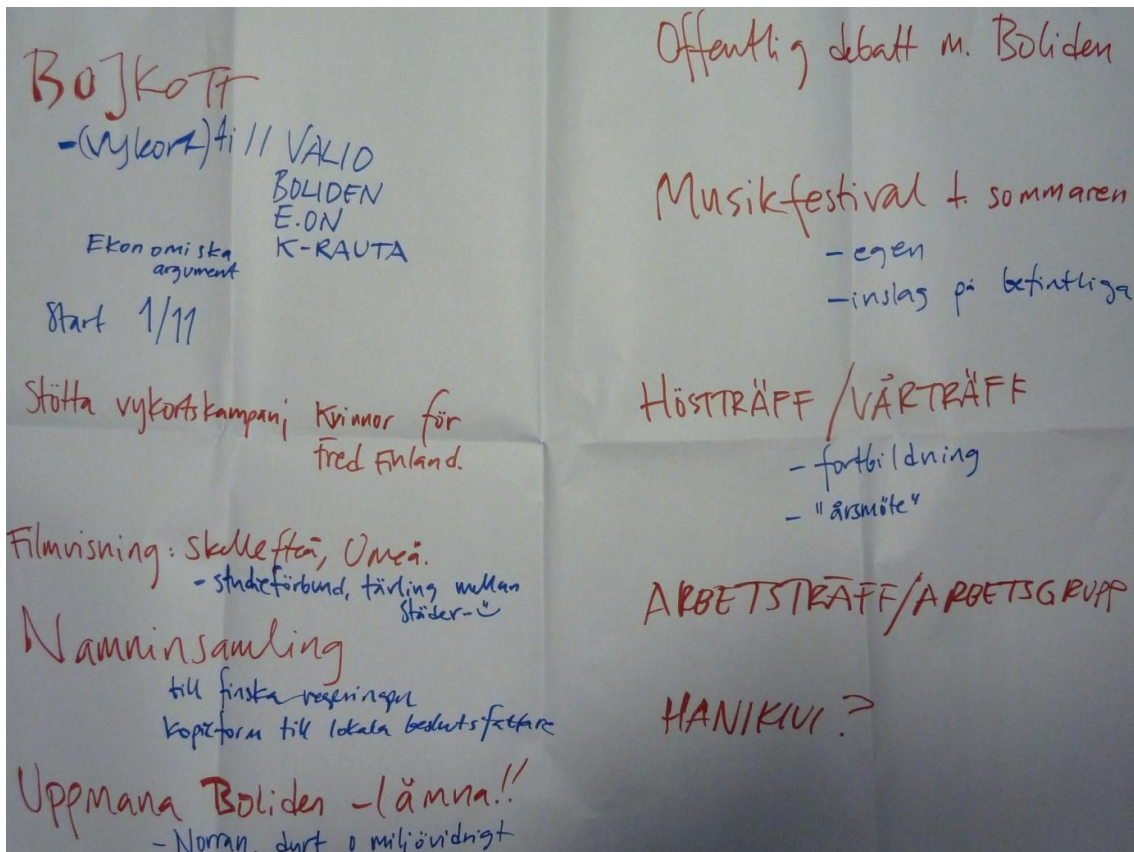 BOJKOTT
-(vykort) till VALIO
BOLIDEN
E.ON
K-RAUTA
Ekonomiska
argument
Start 1/11
Stötta vykortskampanj Kvinnor för
Fred Finland.
Filmvisning: Skellefteå, Umeå.
- studieförbund, tävling mellan
Städer...
Namninsamling
till finska regeringen
Kopieform till lokala beslutsfattare
Uppmana Boliden - lämna!!
- Norran, dyrt o miljövidrigt
Offentlig debatt m. Boliden
Musikfestival t. sommaren
- egen
- inslag på befintliga
HÖSTTRÄFF / VÅRTRÄFF
- fortbildning
- "årsmöte"
ARBETSTRÄFF/ARBETSGRUPP
HANIKIVI?